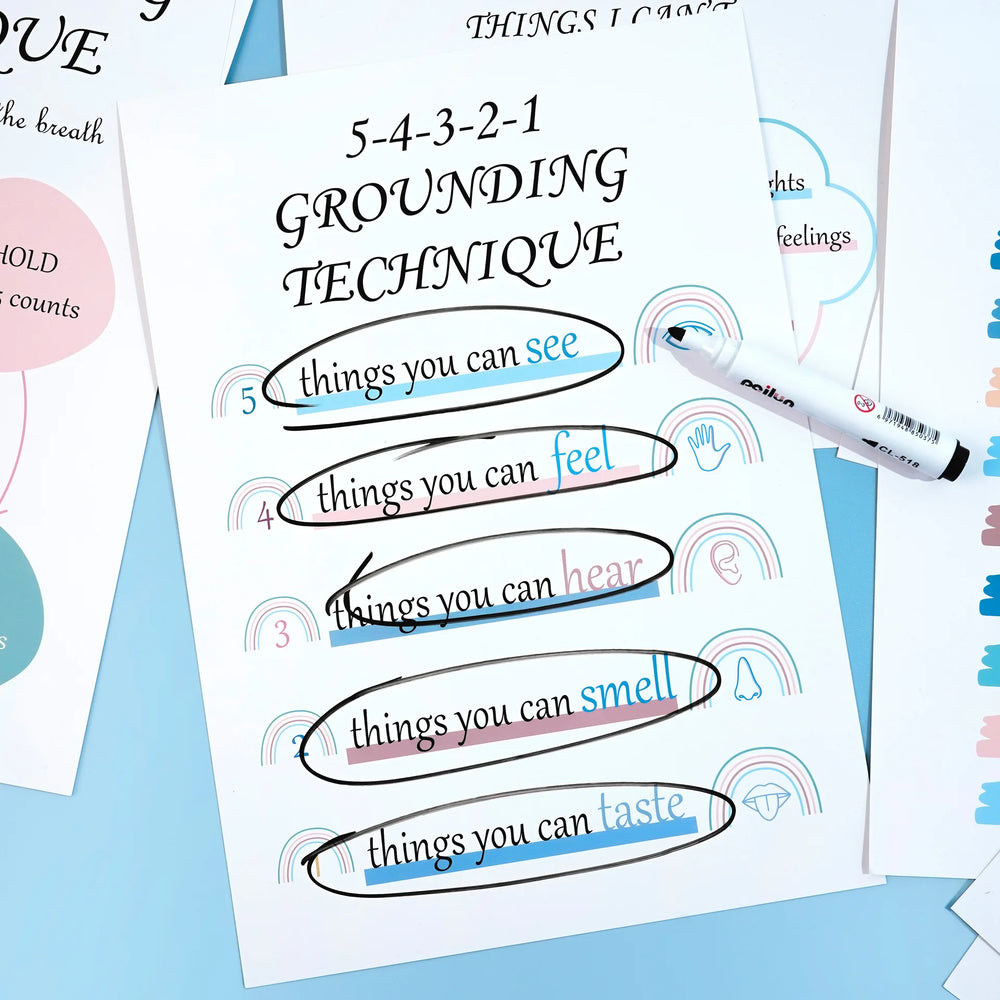 QUE
the breath
HOLD
counts
THINGS I CAN'T
5-4-3-2-1
GROUNDING
TECHNIQUE
5 things you can see
4 things you can feel
3 things you can hear
2 things you can smell
1 things you can taste
feelings
pailun
CL-518